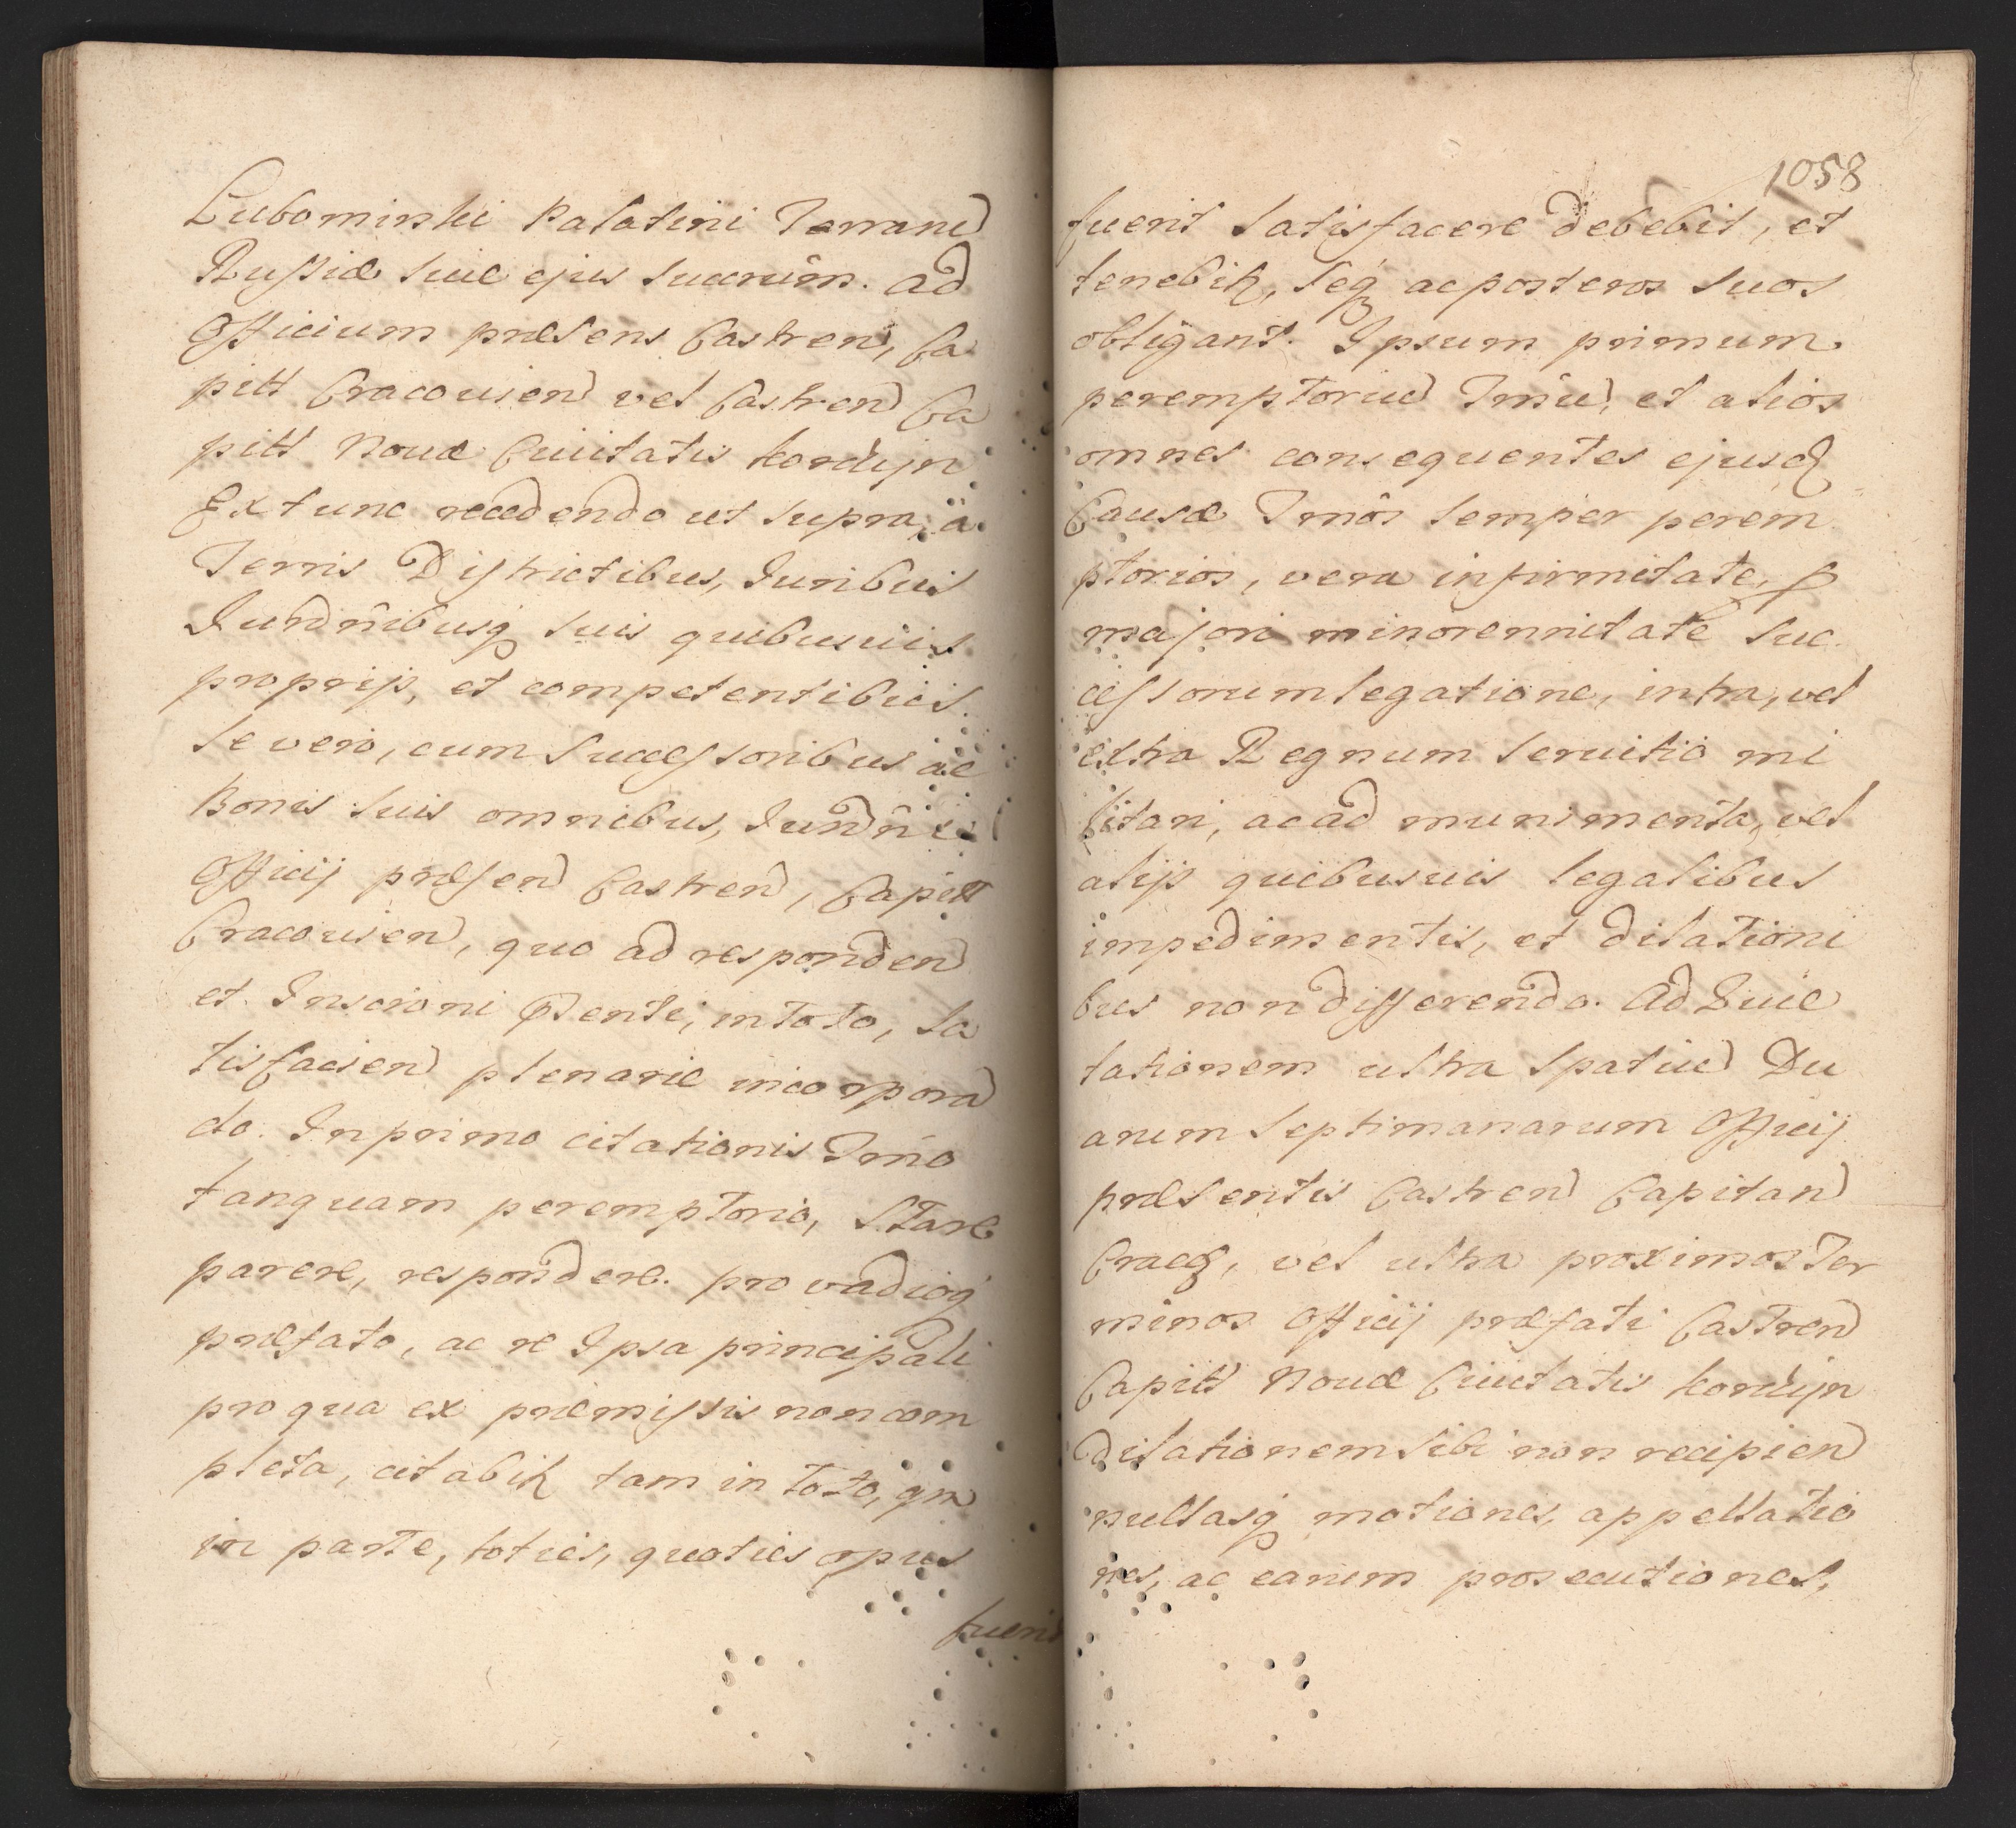 Lubomirski Palatini Terrarū
Russiæ siue ejus succrûm. ad
Officium præsens Castren, Ca
pitt Cracouien vel Castren Ca
pitt Nouæ Ciuitatis Korczyn
Extunc recedendo ut supra, à
Terris Districtibus, Juribus
Jurdnîbusq suis quibusuis
proprijs, et competentibus
se vero, cum successoribus ac
Bonis suis omnibus, Jurdnî
Officij præsen Castren, Capitt
Cracouien, quo ad responden
et Inscrioni pñsenti, in toto, sa
tisfacien plenarie incorporā
do. In primo citationis Tmño
tanquam peremptorio, stare
parere, respondere. pro vadioq
præfato, ac re Ipsa principali
pro qua ex præmissis non com
pleta, citabitr tam in toto, qm
in parte, toties, quoties opus
fuerit
1058
fuerit satisfacere debebit, et
tenebitr, seq ac posteros suos
obligant. Ipsum primum
peremptoriū Tmñū, et alios
omnes consequentes ejusd
Causæ Tmños semper perem
ptorios, vera infirmitate, p
majori minorennitate suc
cessorum legatione, intra, vel
extra Regnum seruitio mi
litari, ac ad munimenta, vel
alijs quibusuis legalibus
impedimentis, et dilationi
bus non differendo. Ad Luie
tationem ultra spatiū Du
arum septimanarum Officij
præsentis Castren Capitan
Crac, vel ultra proximos Ter
minos Officij præfati Castren
Capitt Nouæ Ciuitatis Korczyn
dilationem sibi non recipien
nullasq motiones, appellatio
nes, ac earum prosecutiones,